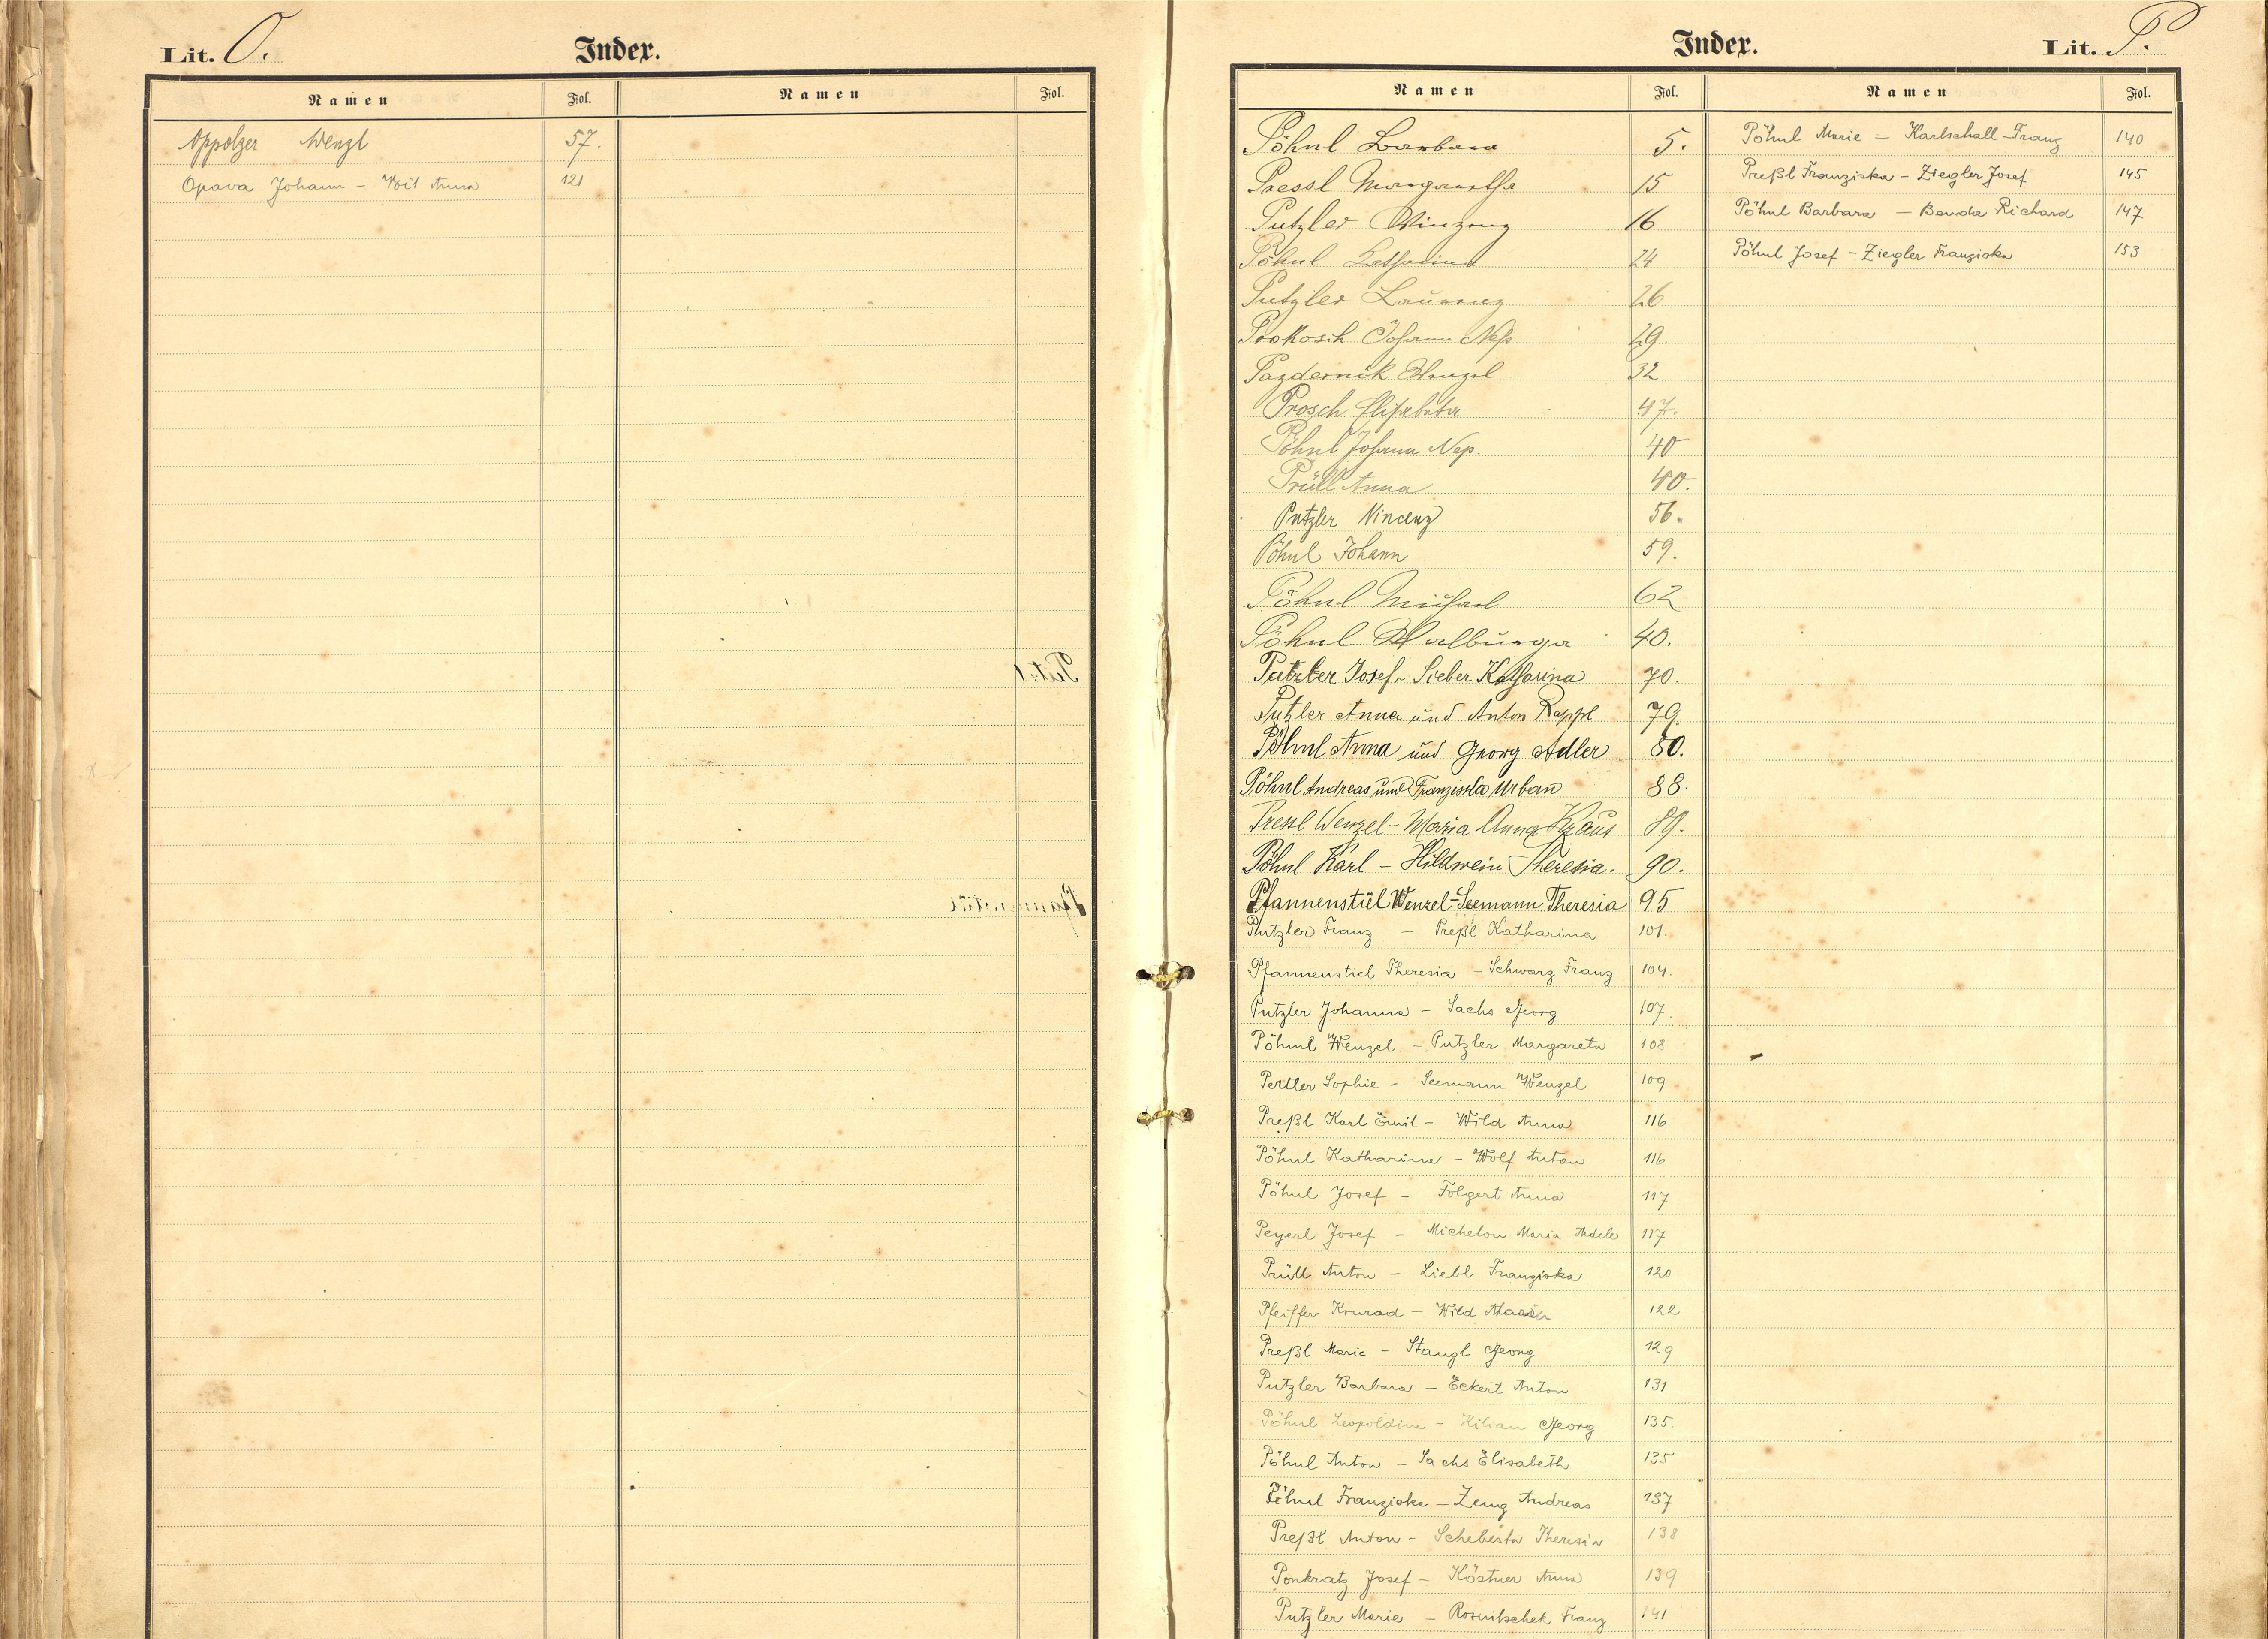 Lit. O. Index.
Namen Fol. Namen Fol.
Oppolzer Wenzl 57.
Opava Johann - Voit Anna 121
Index. Lit. P.
Namen Fol. Namen Fol.
Pöhnl Barbara 5.
Pressl Margaretha 15
Putzler Vinzenz 16
Pöhnl Katharina 24
Putzler Laurenz 26
Prokosch Johann Nep. 29
Pazdernik Wenzel 32
Prosch Elisabeta 47.
Pöhnl Johann Nep. 40
Prüll Anna 40.
Putzler Vincenz 56.
Pöhnl Johann 59.
Pöhnl Michael 62
Pöhnl Walburga 40.
Putzler Josef - Sieber Katharina 70.
Putzler Anna und Anton Rappl 79.
Pöhnl Anna und Georg Adler 80.
Pöhnl Andreas und Franziska Urban 88.
Pressl Wenzel - Maria Anna Kraus 89.
Pöhnl Karl - Hildwein Theresia. 90.
Pfannenstiel Wenzel - Seemann Theresia 95
Putzler Franz - Preßl Katharina 101.
Pfannenstiel Theresia - Schwarz Franz 104.
Putzler Johanna - Sachs Georg 107.
Pöhnl Wenzel - Putzler Margareta 108
Pertler Sophie - Seemann Wenzel 109
Preßl Karl Emil - Wild Anna 116
Pöhnl Katharina - Wolf Anton 116
Pöhnl Josef - Folgert Anna 117
Peyerl Josef - Michelon Maria Adele 117
Prüll Anton - Liebl Franziska 120
Pfeiffer Konrad - Wild 122
Preßl Marie - Stangl Georg 129
Putzler Barbara - Eckert Anton 131
Pöhnl Leopoldine - Kilian Georg 135.
Pöhnl Anton - Sachs Elisabeth 135
Pöhnl Franziska - Zeug Andreas 137
Preßl Anton - Scheberta Theresia 138
Ponkratz Josef - Köstner Anna 139
Putzler Marie - Rosnitschek Franz 141
Pöhnl Marie - Karlschall Franz 140
Preßl Franziska - Ziegler Josef 145
Pöhnl Barbara - Benda Richard 147
Pöhnl Josef - Ziegler Franziska 153